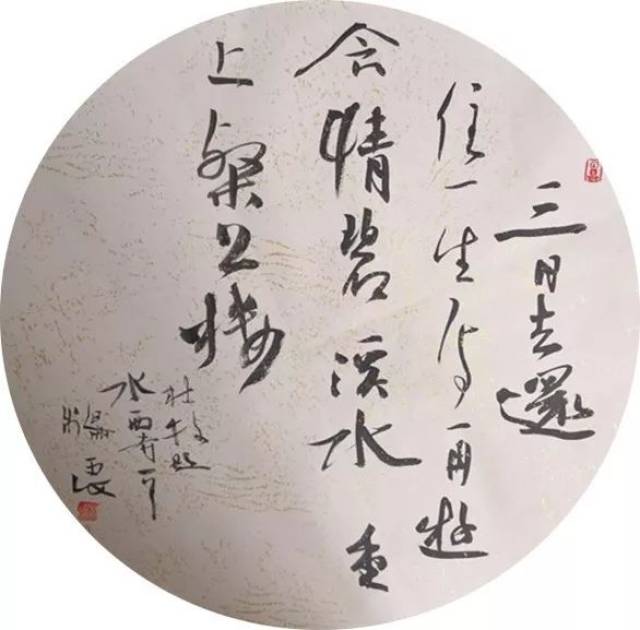 三日去還
住一生焉再遊
含情碧溪水重
上粲公楼
杜牧题
水西寺